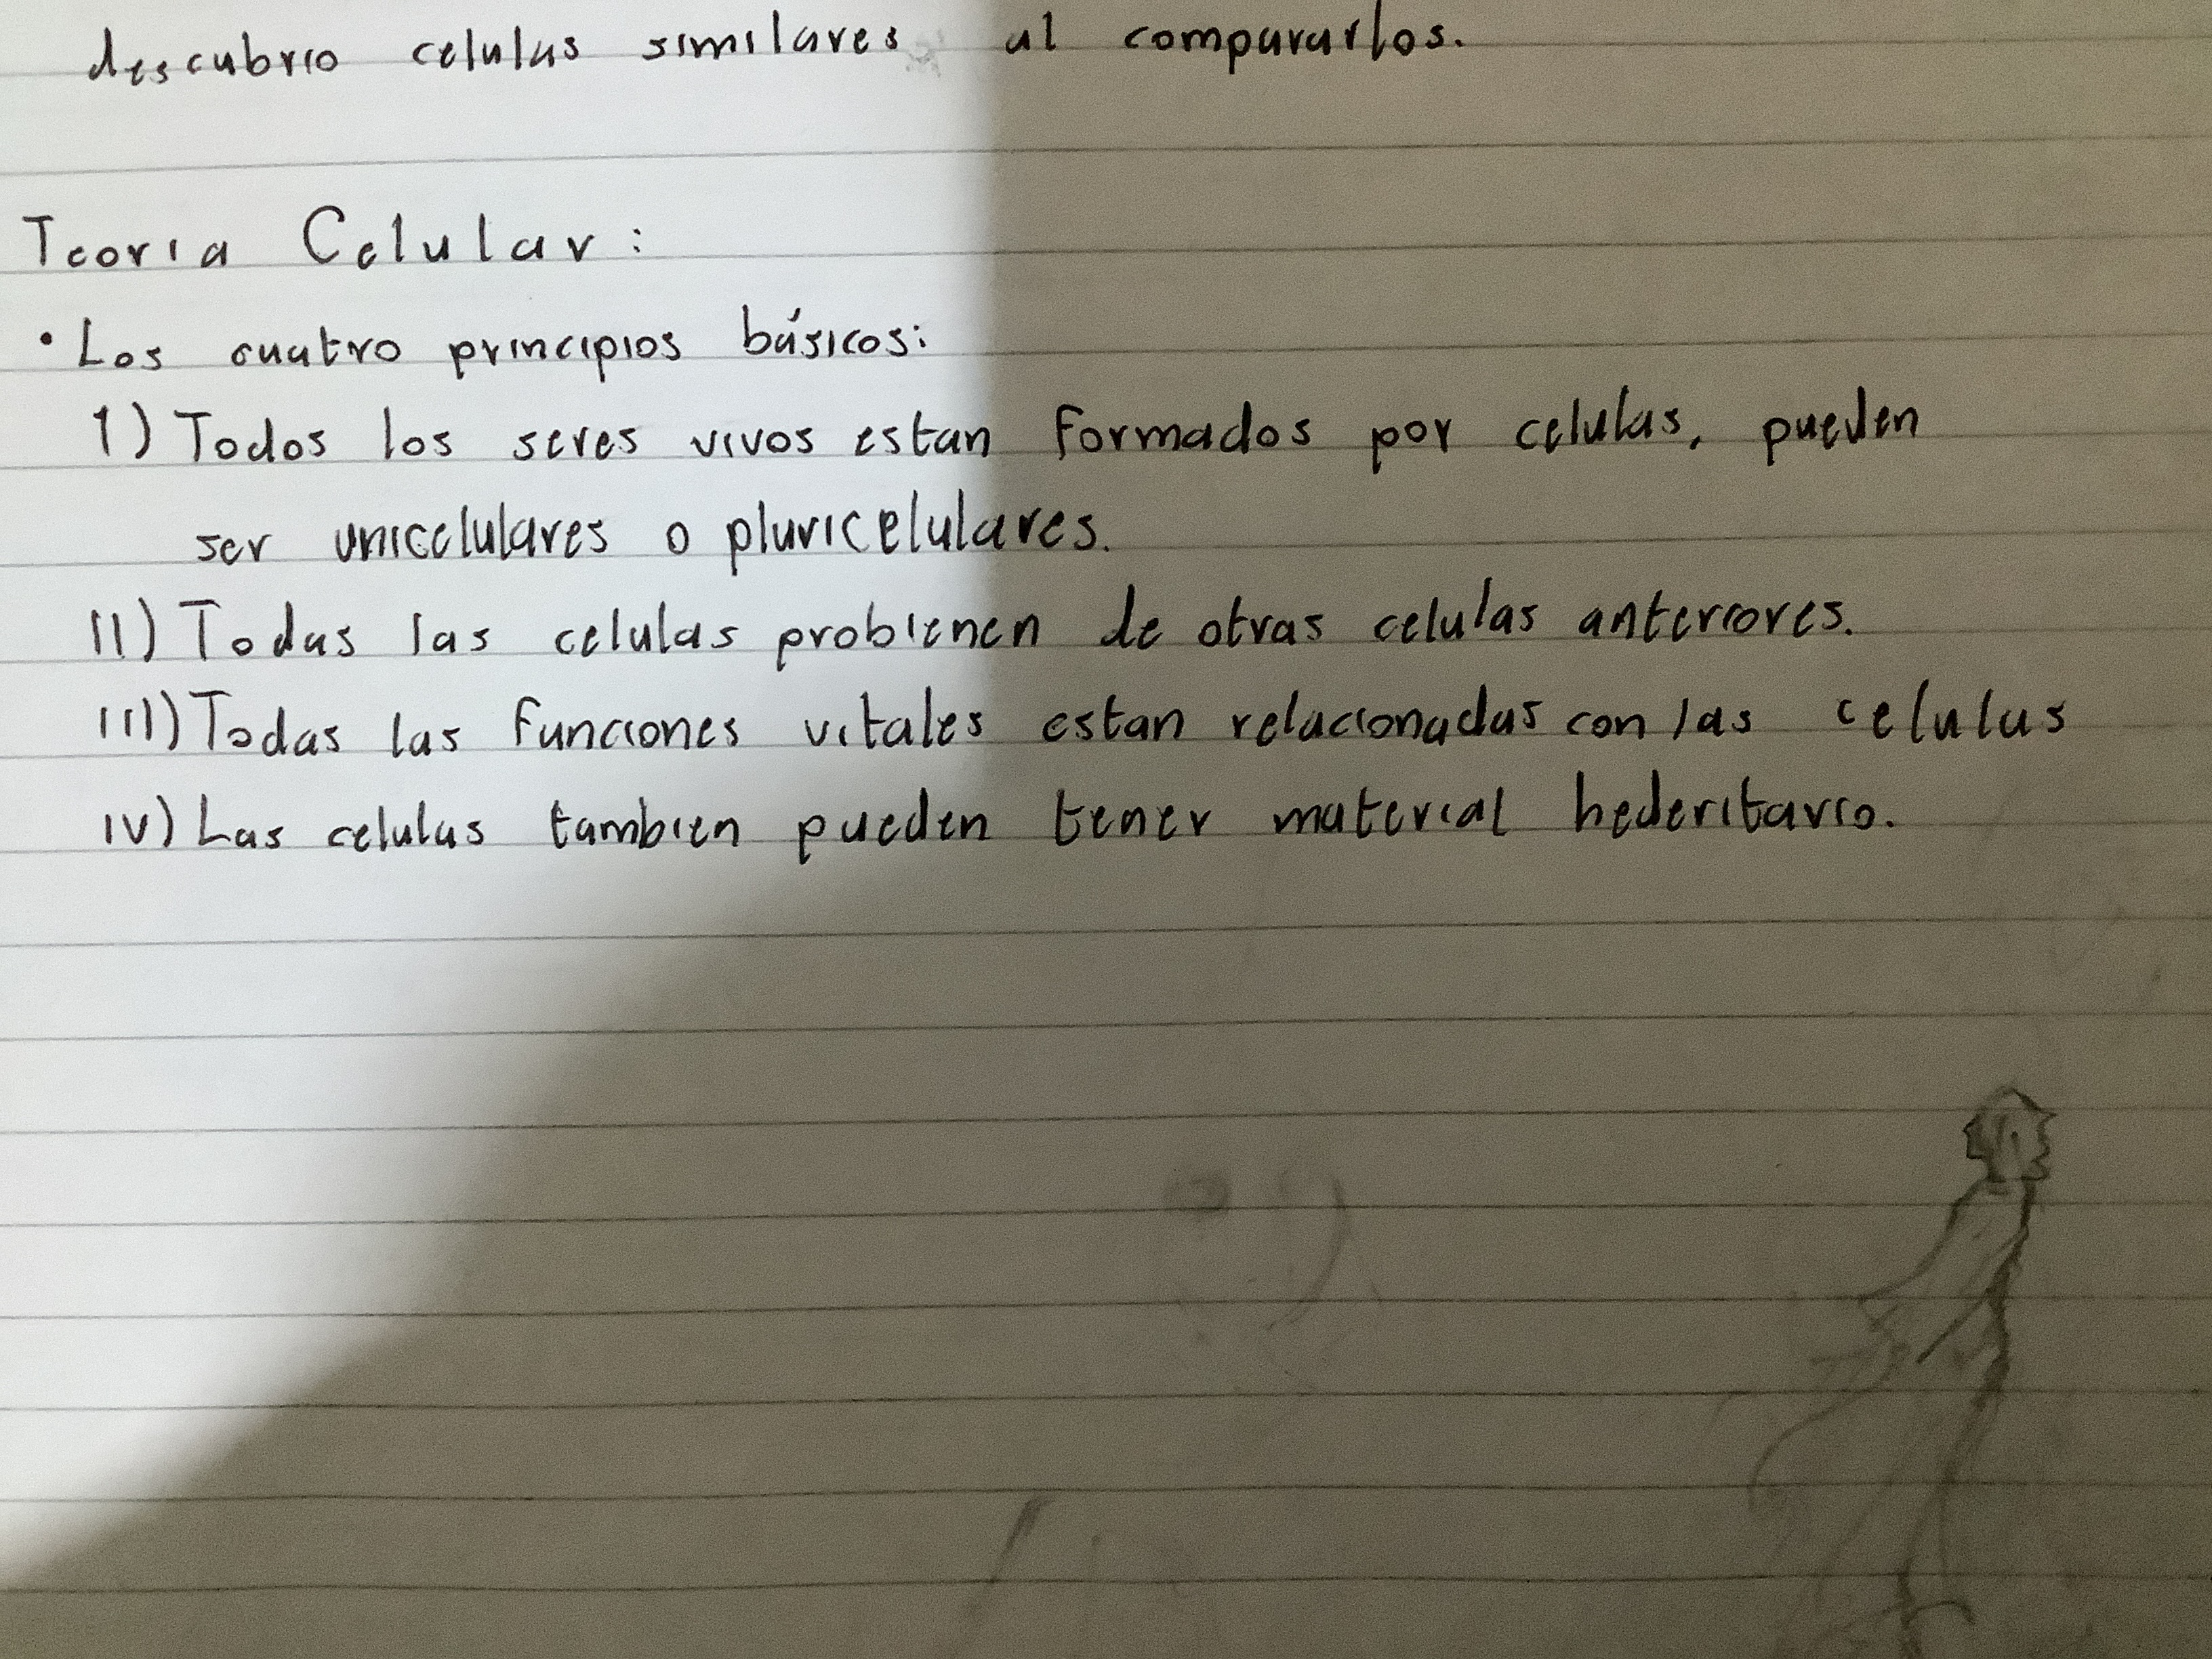 descubrio celulas similares al compararlos.
Teoria Celular:
• Los cuatro principios básicos:
I) Todos los seres vivos estan formados por celulas, pueden
ser unicelulares o pluricelulares.
II) Todas las celulas probienen de otras celulas anteriores.
III) Todas las funciones vitales estan relacionadas con las celulas
IV) Las celulas tambien pueden tener material hederitario.